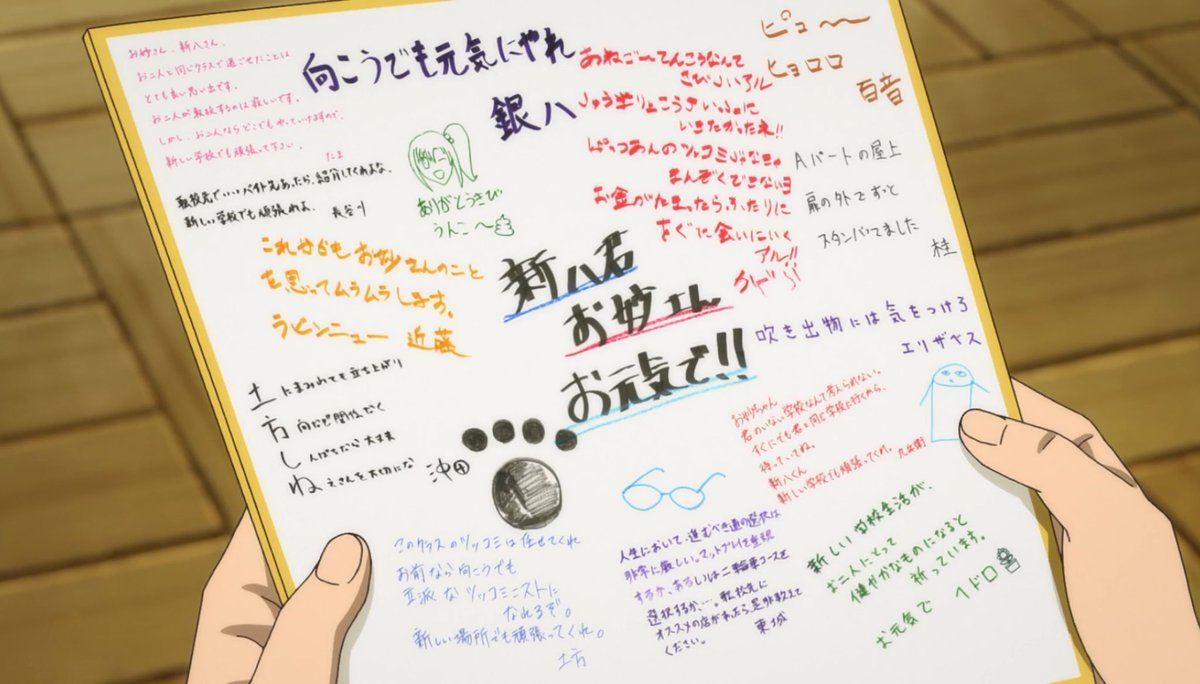 お妙さん、新八さん、
お二人と同じクラスで過ごせたことは
とても良い思い出です。
お二人が転校するのは寂しいです。
しかし、お二人ならどこでもやっていけますので、
新しい学校でも頑張って下さい。
たま
向こうでも元気にやれ
銀八
あねごーてんこうなんて
さびしいアル
しゅう学りょこうもいっしょに
いきたかったネ!!
ぱっつあんのツッコミじゃなきゃ
まんぞくできないヨ
お金がたまったらふたりに
すぐに会いにいく
アル!!
かぐら
ピュー〜
ヒョロロ
百音
転校先でいいバイト先あったら、紹介してくれよな。
新しい学校でも頑張れよ。
長谷川
ありがとうさび
うんこ〜
Aパートの屋上
扉の外でずっと
スタンバってました
桂
これからもお妙さんのこと
を思ってムラムラします。
ラビンニュー 近藤
新八君
お妙さん
お元気で!!
吹き出物には気をつけろ
エリザベス
土 にまみれても立ち上がり
方 向など関係なく
し んぱちなら大丈夫
ね えさんを大切にな
沖田
おたえちゃん
君のいない学校なんて考えられない。
すぐにでも君と同じ学校に行くから、
待っていてね。
新八くん
新しい学校でも頑張ってくれ。 九兵衛
このクラスのツッコミは任せてくれ
お前なら向こうでも
立派なツッコミニストに
なれるぞ。
新しい場所でも頑張ってくれ。
土方
人生において、進むべき道の選択は
非常に厳しい。マットプレイを選択
するか、あるいは二輪車コースを
選択するか…。転校先に
オススメの店があったら是非教えて
ください。
東城
新しい学校生活が、
お二人にとって
健やかなものになると
祈っています。
お元気で ヘドロ